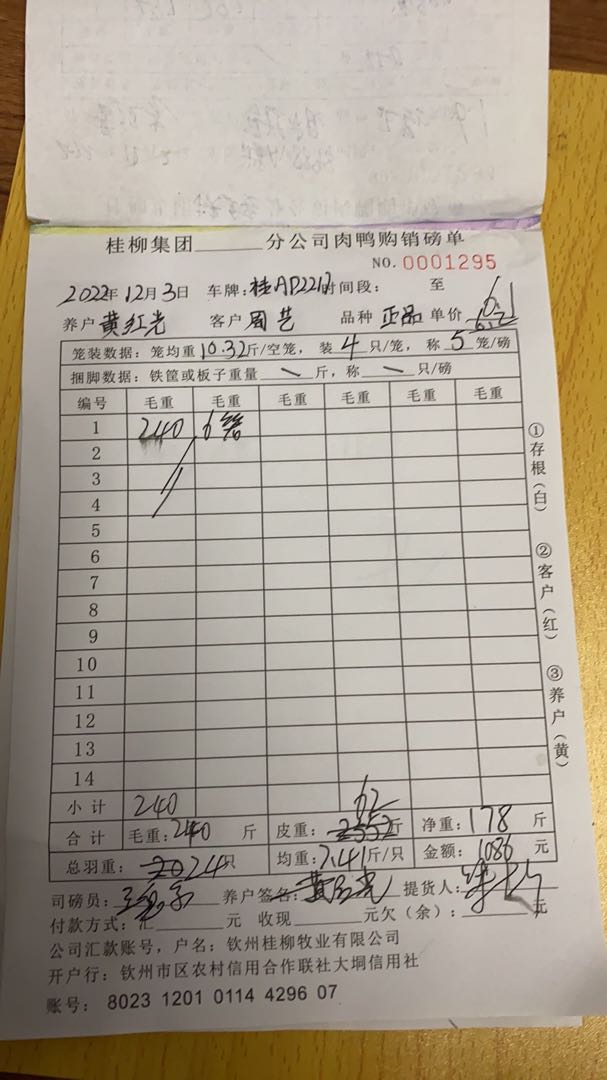 桂柳集团______分公司肉鸭购销磅单
NO. 0001295
2022年12月3日 车牌:桂AD2217时间段: 至
养户 黄红光 客户 周艺 品种 正品 单价 6.1
笼装数据:笼均重10.32斤/空笼,装4只/笼,称5笼/磅
捆脚数据:铁筐或板子重量\斤,称\只/磅
编号 毛重 毛重 毛重 毛重 毛重 毛重
1 240 6笼
2
3
4
5
6
7
8
9
10
11
12
13
14
小计 240 62
合计 毛重:240斤 皮重:斤 净重:178斤
总羽重:24只 均重:7.41斤/只 金额:1086元
司磅员: 养户签名:黄红光 提货人:
付款方式:汇______元 收现______元欠(余):______元
公司汇款账号,户名:钦州桂柳牧业有限公司
开户行:钦州市区农村信用合作联社大垌信用社
账号: 8023 1201 0114 4296 07
①存根(白)
②客户(红)
③养户(黄)